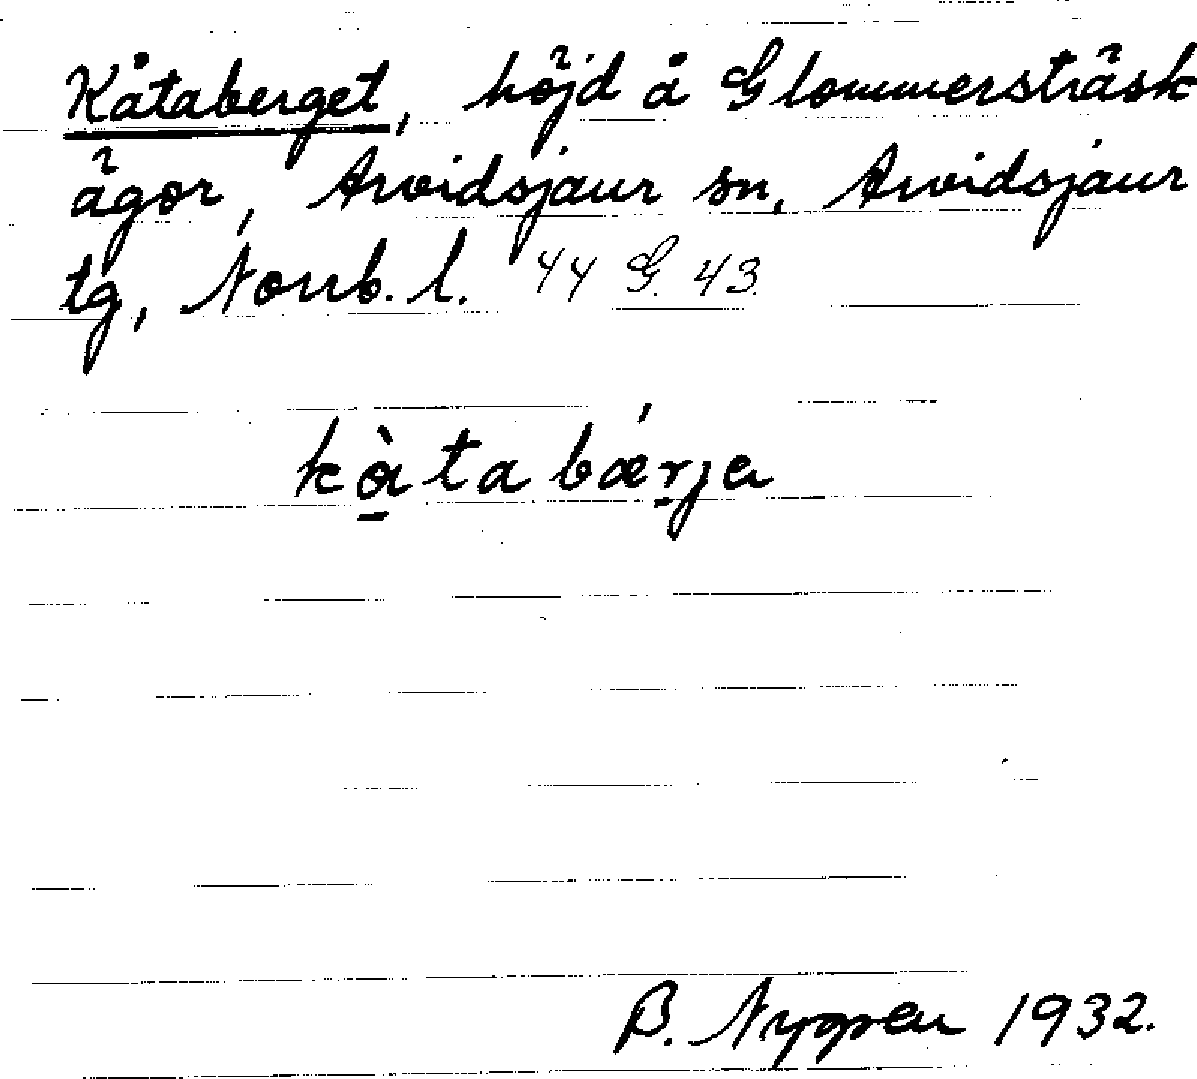 Kåtaberget, höjd å Glommersträsk
ägor, Arvidsjaur sn, Arvidsjaur
tg, Norrb. l. 44 G. 43.
kå̱̀tabǽṟja
B. Nygren 1932.